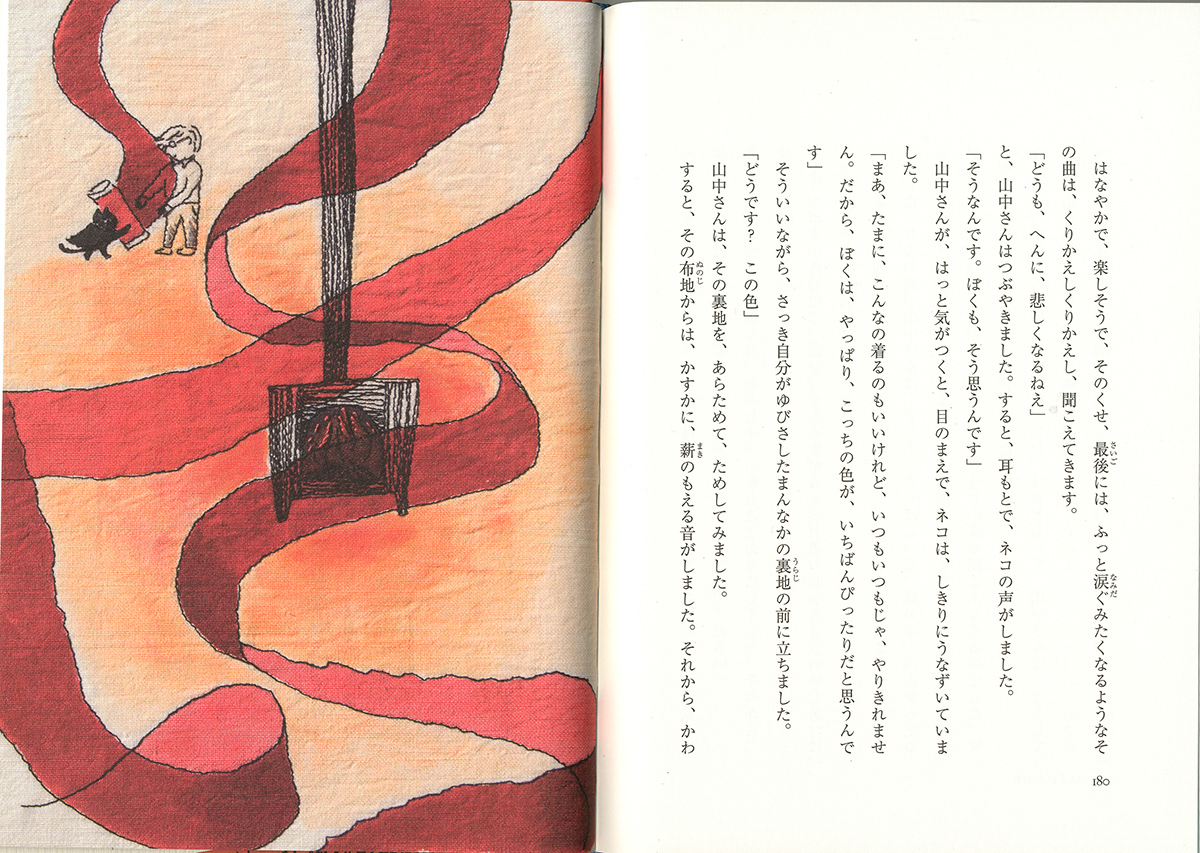 はなやかで、楽しそうで、そのくせ、最後には、ふっと涙ぐみたくなるようなそ
の曲は、くりかえしくりかえし、聞こえてきます。
「どうも、へんに、悲しくなるねえ」
と、山中さんはつぶやきました。すると、耳もとで、ネコの声がしました。
「そうなんです。ぼくも、そう思うんです」
山中さんが、はっと気がつくと、目のまえで、ネコは、しきりにうなずいていま
した。
「まあ、たまに、こんなの着るのもいいけれど、いつもいつもじゃ、やりきれませ
ん。だから、ぼくは、やっぱり、こっちの色が、いちばんぴったりだと思うんで
す」
そういいながら、さっき自分がゆびさしたまんなかの裏地の前に立ちました。
「どうです？　この色」
山中さんは、その裏地を、あらためて、ためしてみました。
すると、その布地からは、かすかに、薪のもえる音がしました。それから、かわ
さいご
なみだ
うらじ
ぬのじ
まき
180